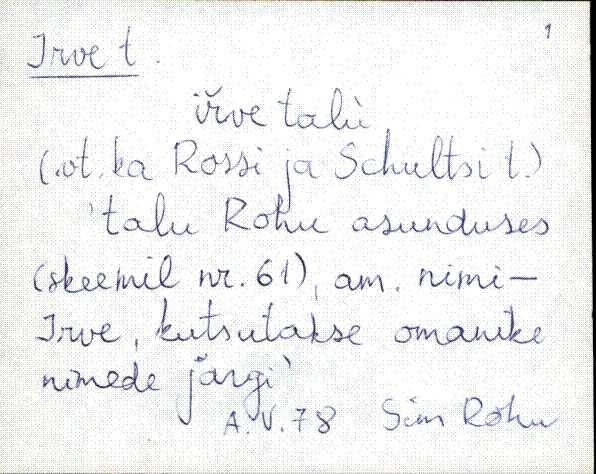 1
Irve t.
ĭrve talù
(vt. ka Rossi ja Schultsi t.)
'talu Rohu asunduses
(skeemil nr. 61), am. nimi –
Irve, kutsutakse omanike
nimede järgi'
A.V.78 Sim Rohu